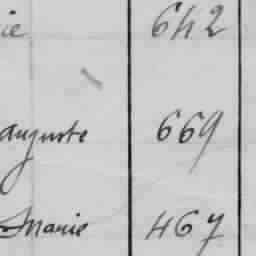 ie 642
auguste 669
Marie 467